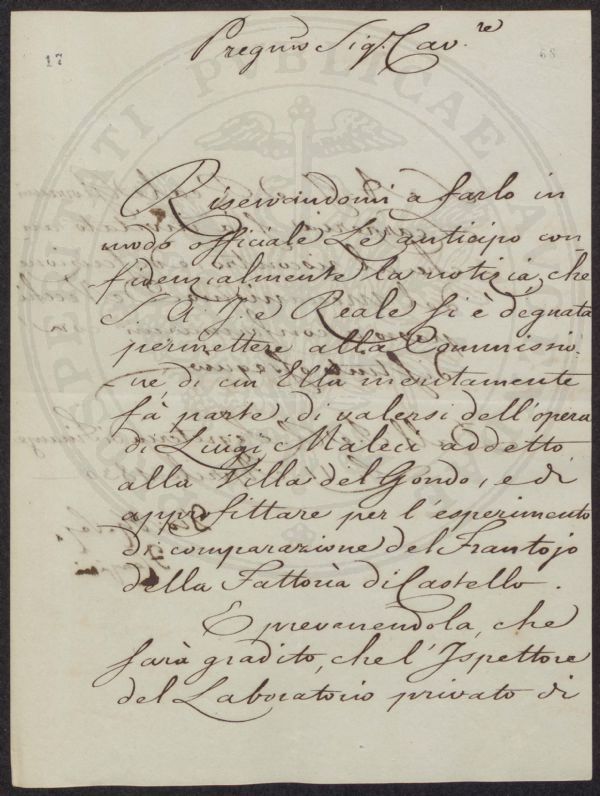 17
68
Pregmo Sigr. Cavre
Riserbandomi a farlo in
modo officiale Le anticipo con-
fidenzialmente la notizia, che
S. A. I. e Reale si è degnata
permettere alla Commissio-
ne di cui Ella meritamente
fà parte, di valersi dell'opera
di Luigi Maleci addetto
alla Villa del Gondo, e di
approfittare per l'esperimento
di comparazione del Frantojo
della Fattoria di Castello.
E prevenendola, che
sarà gradito, che l'Ispettore
del Laboratorio privato di